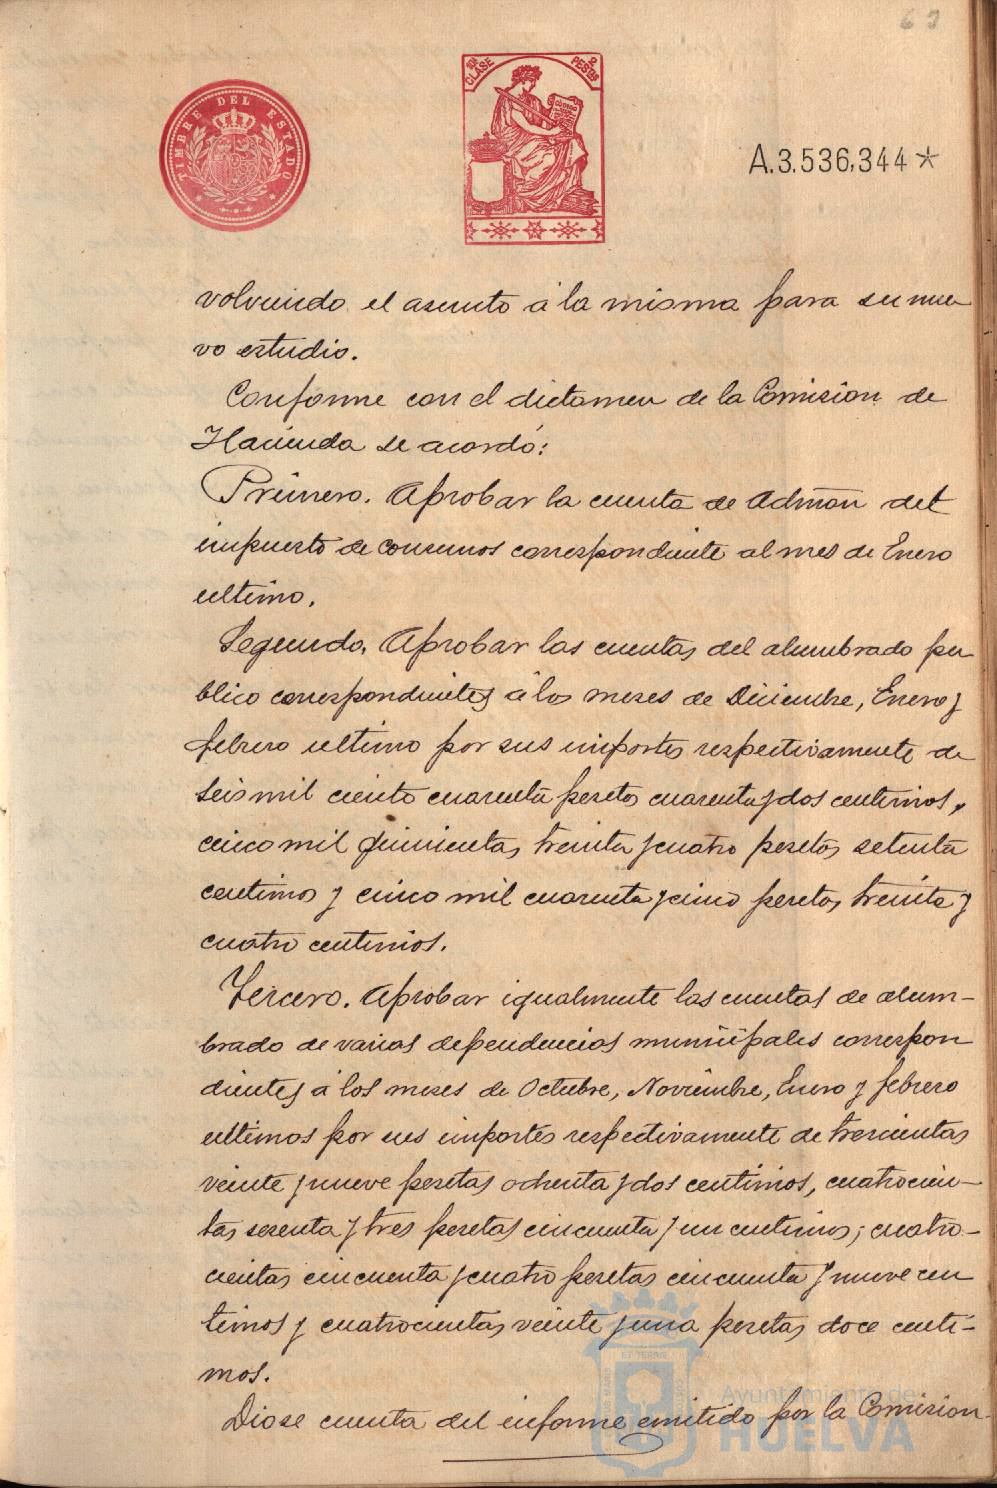 69
TIMBRE DEL ESTADO
10ª CLASE
2 PESTAS
A.3.536,344*
volviendo el asunto á la misma para su nue
vo estudio.
Conforme con el dictamen de la Comision de
Hacienda se acordó:
Primero. Aprobar la cuenta de Admon del
impuesto de consumos correspondiente al mes de Enero
ultimo.
Segundo. Aprobar las cuentas del alumbrado pu
blico correspondientes á los meses de Diciembre, Enero y
febrero ultimo por sus importes respectivamente de
seis mil ciento cuarenta pesetas cuarenta y dos centimos,
cinco mil quinientas treinta y cuatro pesetas setenta
centimos y cinco mil cuarenta y cinco pesetas treinta y
cuatro centimos.
Tercero. Aprobar igualmente las cuentas de alum-
brado de varias dependencias municipales correspon
dientes á los meses de Octubre, Noviembre, Enero y febrero
ultimos por sus importes respectivamente de trescientas
veinte y nueve pesetas ochenta y dos centimos, cuatrocien-
tas sesenta y tres pesetas cincuenta y un centimos; cuatro-
cientas cincuenta y cuatro pesetas cincuenta y nueve cen
timos y cuatrocientas veinte y una pesetas doce centi-
mos.
Diose cuenta del informe emitido por la Comision
Ayuntamiento de
HUELVA